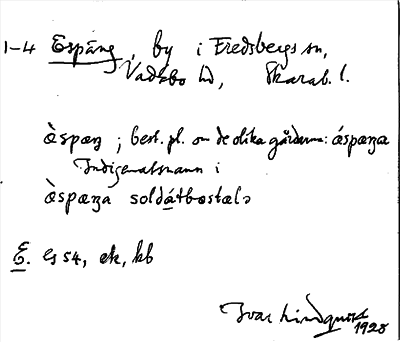 1–4 Espäng, by i Fredsbergs sn,
Vadsbo hd, Skarab. l.
æ̀spæŋ ; best. pl. om de olika gårdarna: ǽspæŋa
Indigenatsnamn i
æ̀spæŋa soldátbostælə
E. gs 54, ek, kb
Ivar Lindquist
1928